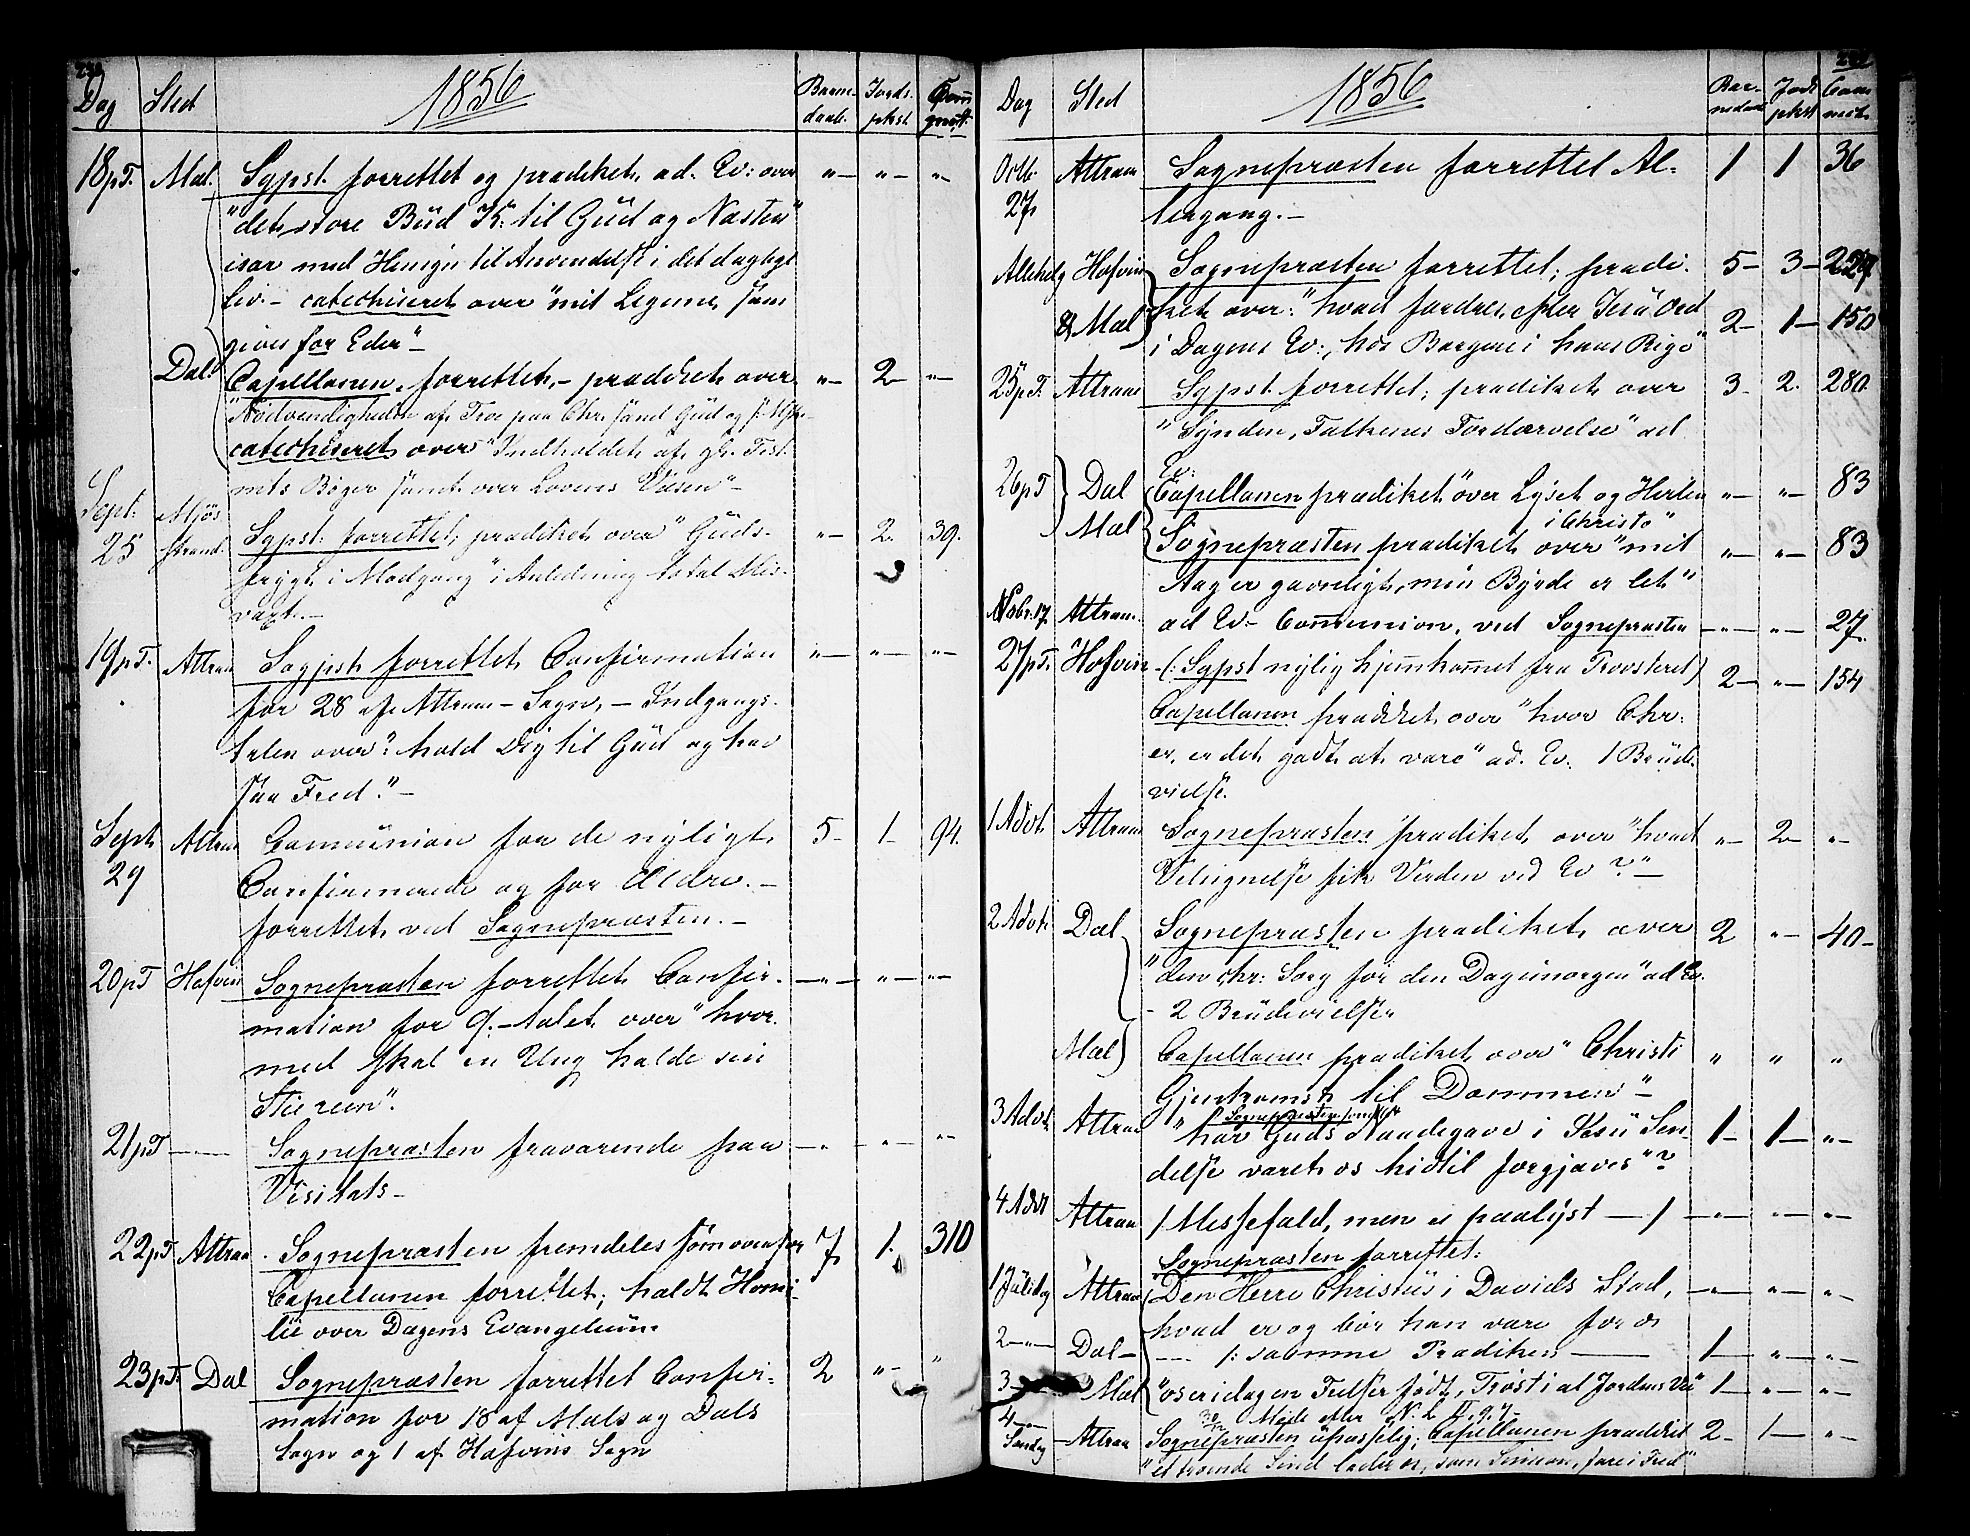 Dag Sted 1856 Barne- Jords- Com̅
daab. pkst. gnnt.
18pT. Mæl. Sgpst. forrettet og prædiket ad. Ev: over „— „— „—
"det store Bud K: til Gud og Næsten"
især med Hensyn til Anvendelse i det daglige
Liv. — catechiseret over "mit Legeme, som
gives for Eder" —
Dal. Capellanen forrettet, — prædiket over „— 2— „—
"Nødvendigheden af Troe paa Chr. som Gud og
catechiseret over "Indholdet af gl. Test.
mts Bøger samt over Lovens Væsen" —
Sept. 25 Mjös- strand. Sgpst. forrettet, prædiket over "Guds- „— 2. 39.
frygt i Modgang" i Anledning total Mis-
vaxt. —
19pT. Attraa Sogpst forrettet Confirmation „— „— „—
for 28 af Attraa — Sogn, — Indgangs-
talen over: "hold Dig til Gud og hav
saa Fred." —
Sept 29 Attraa Communion for de nyligt 5— 1— 94.
Confirmerede og for Ældre. —
forrettet ved Sognepræsten. —
20pT Hofvin Sognepræsten forrettet Confir- —„— „— „—
mation for 9. — talet over "hvor
med skal en Ung holde sin
Stie reen".
21pT —— Sognepræsten fraværende paa —„— „— „—
Visitats —
22pT. Attraa. Sognepræsten fremdeles som ovenfor 7 1. 310
Capellanen forrettet; holdt Homi-
lie over Dagens Evangelium.
23pT. Dal Sognepræsten forrettet Confir- 2 „— „
mation for 18 af Mæls og Dals
Sogn og 1 af Hofvins Sogn
Dag Sted 1856 Bar- Jord Com
nedaab pkst mnt.
Octb. 27 Attraa Sognepræsten forrettet Al- 1 1 36
tergang. —
Allehelg Hofvin Sognepræsten forrettet; prædi- 5— 3— 227
& Mæl ket over: "hvad fordres efter Jesu Ord 2— 1— 150
i Dagens Ev:, hos Borgere i hans Rige"
25pT. Attraa Sgpst forrettet; prædiket over 3— 2. 280.
"Synden, Folkenes Fordærvelse" ad
Ev:
26pT Dal Capellanen prædiket over Lyset og „— „— 83
i Christo"
Mæl Sognepræsten prædiket over "mit „— „— 83
Aag er gavnligt, min Byrde er let"
Novbr. 17. Attraa. ad Ev— Communion, ved Sognepræsten —„— „— 27.
27pT. Hofvin (: Sgpst nylig hjemkommet fra Provsteret) 2— „— 154
Capellanen prædiket over "hvor Chr:
er, er det godt at være" ad. Ev: 1 Brude-
vielse.
1 Advt. Attraa Sognepræsten prædiket over "hvad „— 2— „—
Velsignelse fik Verden ved Ev?" —
2 Advt. Dal Sognepræsten prædiket over 2 „— 40—
"den chr: Sorg for den Dag imorgen" ad Ev.
— 2 Brudevielser
Mæl Capellanen prædiket over "Christi „ „ „
Gjenkomst til Dommen" —
Sognepræsten forrettet
3 Advt. Attraa "har Guds Naadegave i Jesu Sen- 1— 1— „—
delse været os hidtil forgjæves"?
4 Advt Attraa / Messefald, men ei paalyst — / —„— „— „—
Sognepræsten forrettet:
1 Juledag Attraa Den Herre Christus i Davids Stad, —„— „— „—
hvad er og bør han være for os
2 —„— Dal — —— /: samme Prædiken —— 1— „— „—
3 Mæl "os er idag en Frelser født, Trøst i al Jordens Vee 1— „— „—
4 —„— Møde efter N. L.
Søndag Attraa Sognepræsten upasselig; Capellanen prædiket 2— 1— „—
"et troende Sind lader os, som Simeon, fare i Fred"